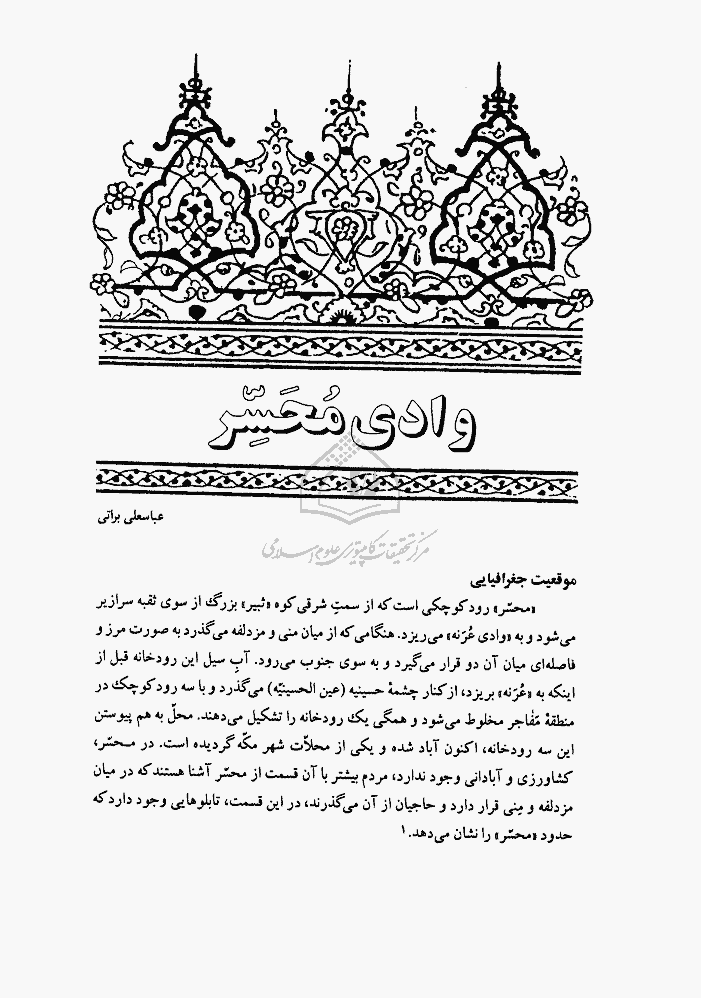 وادی مُحَسِّر
عباسعلی براتی
مرکز تحقیقات کامپیوتری علوم اسلامی
موقعیت جغرافیایی
«محسّر» رود کوچکی است که از سمتِ شرقی کوه «ثبیر» بزرگ از سوی ثقبه سرازیر
می‌شود و به «وادی عُرَنه» می‌ریزد. هنگامی که از میان منی و مزدلفه می‌گذرد به صورت مرز و
فاصله‌ای میان آن دو قرار می‌گیرد و به سوی جنوب می‌رود. آبِ سیل این رودخانه قبل از
اینکه به «عُرَنه» بریزد، از کنار چشمهٔ حسینیه (عین الحسینیّه) می‌گذرد و با سه رود کوچک در
منطقهٔ مَفاجر مخلوط می‌شود و همگی یک رودخانه را تشکیل می‌دهند. محلّ به هم پیوستن
این سه رودخانه، اکنون آباد شده و یکی از محلاّت شهر مکّه گردیده است. در محسّر،
کشاورزی و آبادانی وجود ندارد، مردم بیشتر با آن قسمت از محسّر آشنا هستند که در میان
مزدلفه و مِنی قرار دارد و حاجیان از آن می‌گذرند، در این قسمت، تابلوهایی وجود دارد که
حدود «محسّر» را نشان می‌دهد.۱